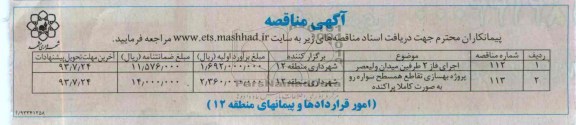 آگهی مناقصه
پیمانکاران محترم جهت دریافت اسناد مناقصه‌های زیر به سایت www.ets.mashhad.ir مراجعه فرمایید.
ردیف شماره مناقصه موضوع برگزار کننده مبلغ برآورد اولیه (ریال) مبلغ ضمانتنامه (ریال) آخرین مهلت تحویل پیشنهادات
۱ ۱۱۲ اجرای فاز ۲ طرفین میدان ولیعصر شهرداری منطقه ۱۲ ۱/۶۹۲/۰۰۰/۰۰۰ ۱۱/۵۷۶/۰۰۰ ۹۳/۷/۲۴
۲ ۱۱۳ پروژه بهسازی تقاطع همسطح سواره رو به صورت کاملا پراکنده شهرداری منطقه ۱۲ ۲/۳۶۰/۰۰۰/۰۰۰ ۱۴/۰۰۰/۰۰۰ ۹۳/۷/۲۴
(امور قراردادها و پیمانهای منطقه ۱۲)